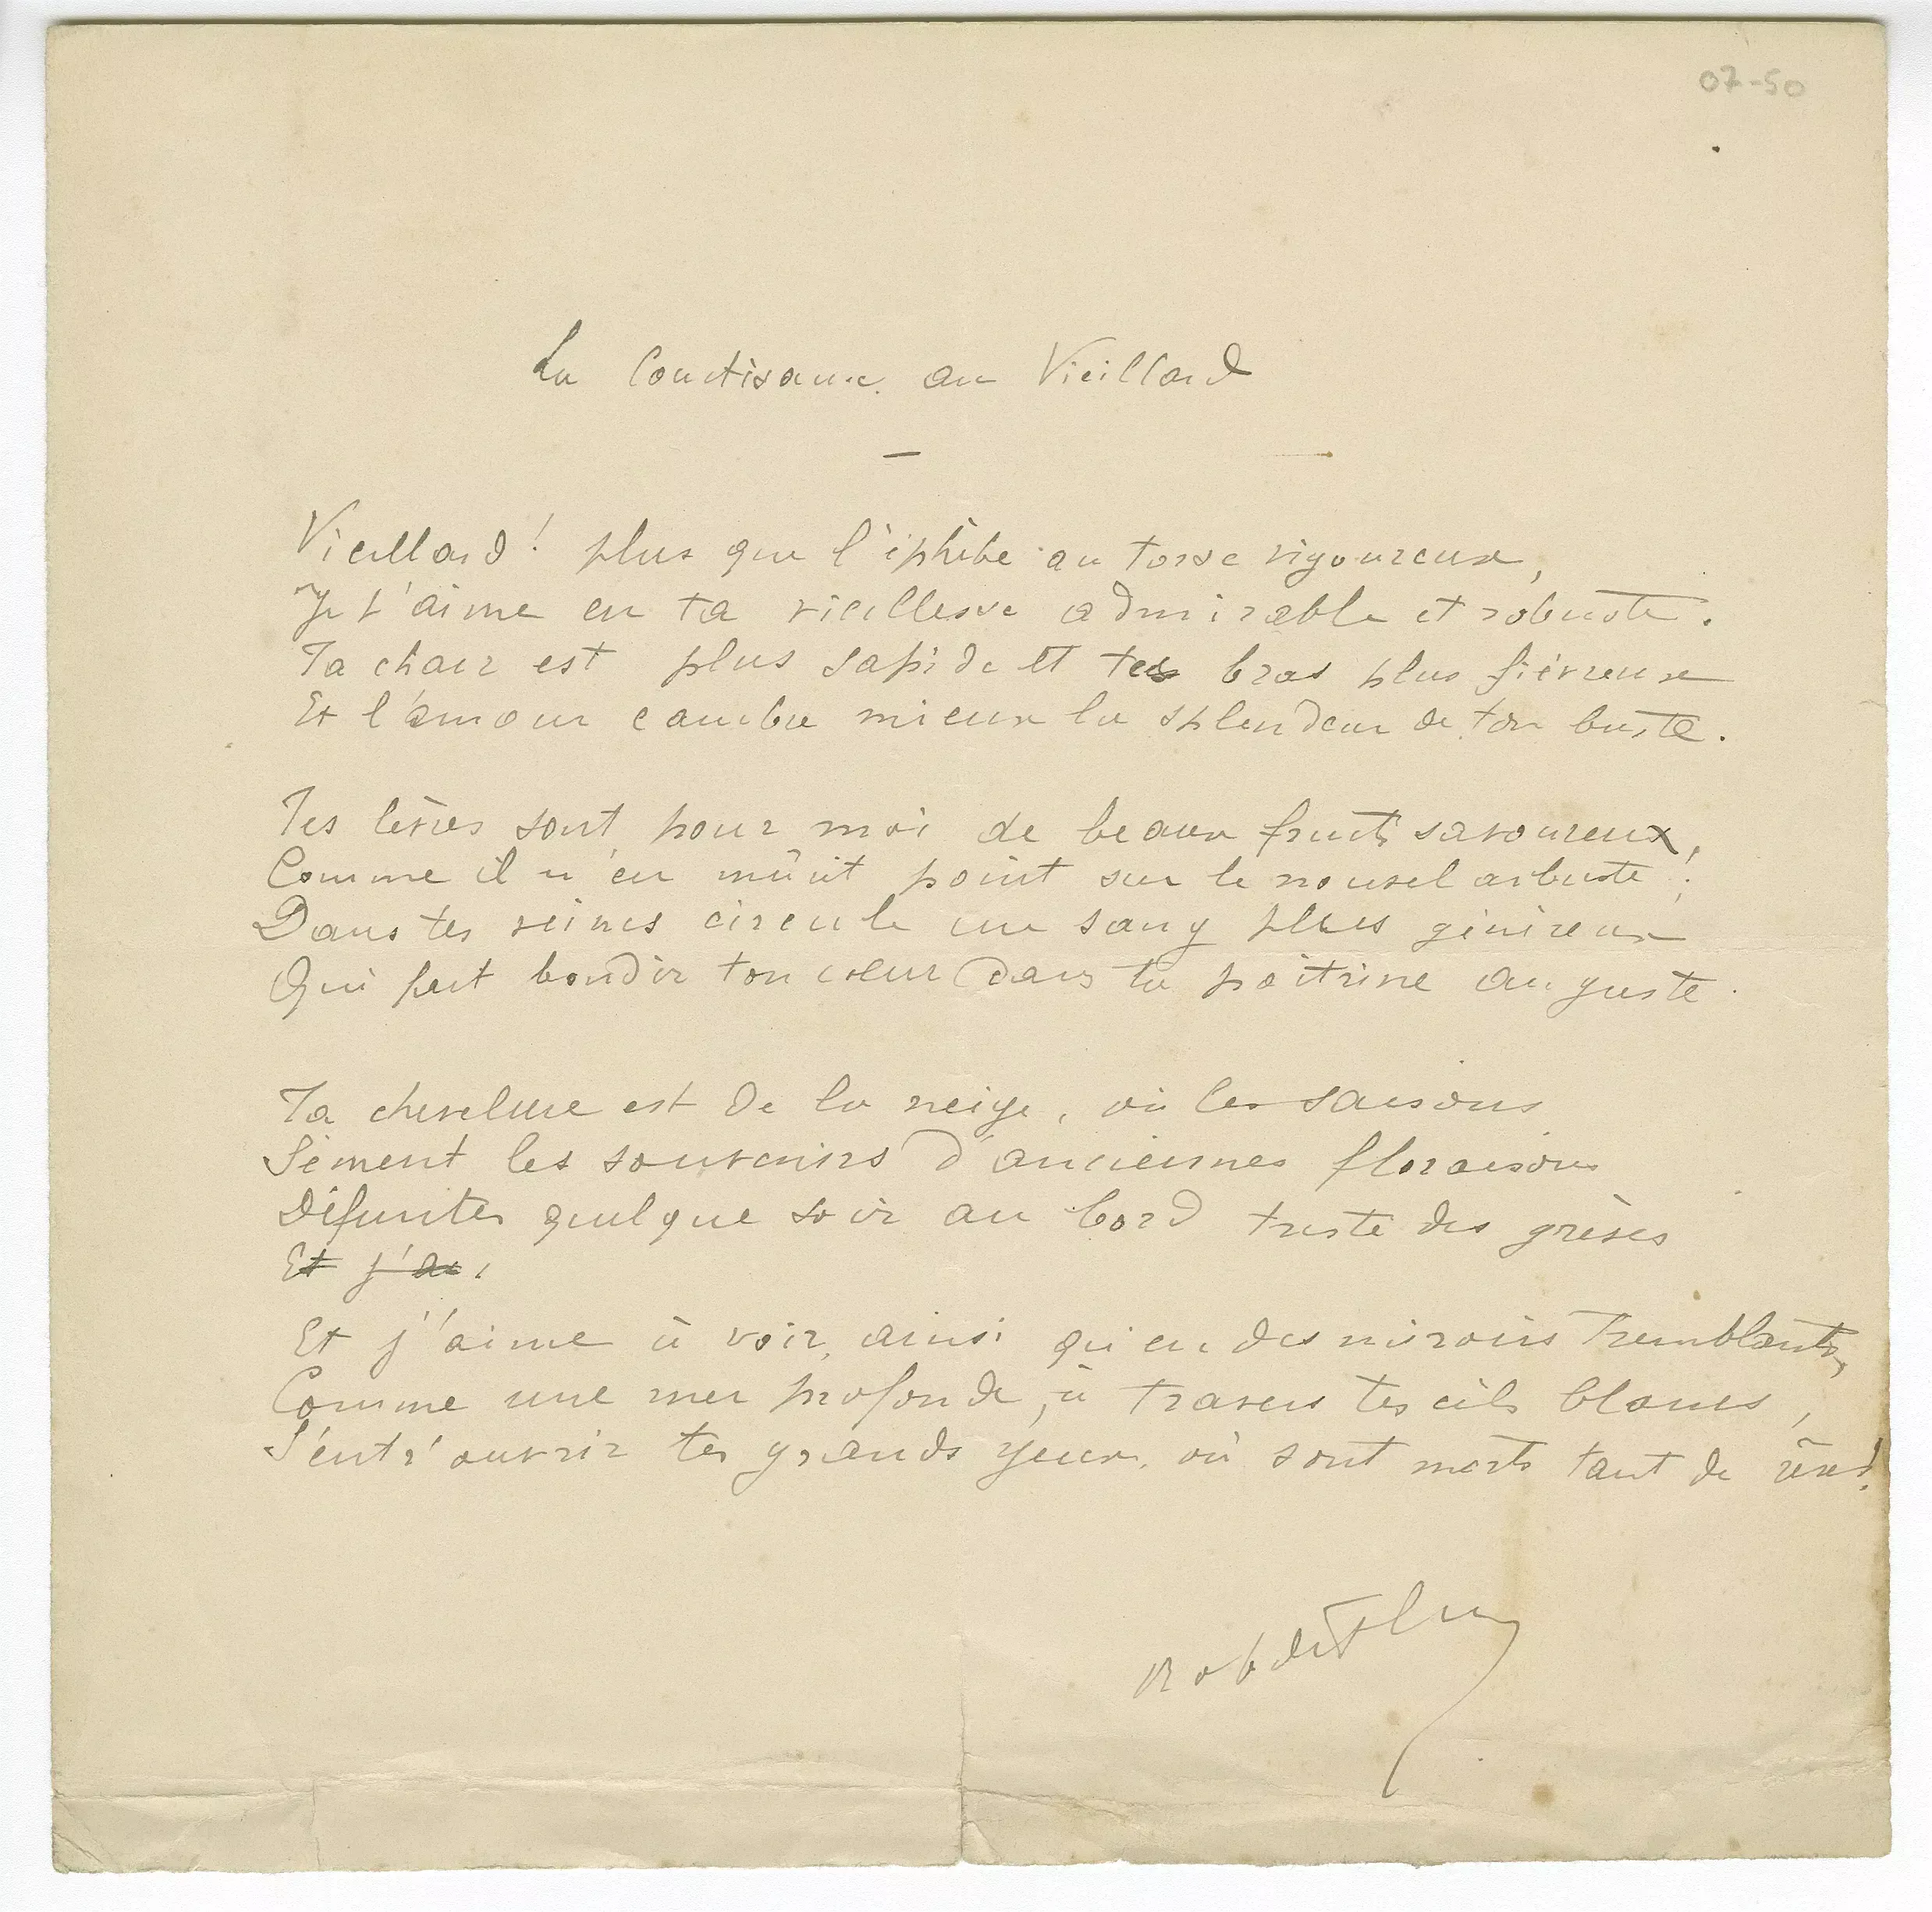 07-50
La Courtisane au Vieillard
—
Vieillard ! plus que l'éphèbe au torse vigoureux,
Je t'aime en ta vieillesse admirable et robuste.
Ta chair est plus sapide et tes bras plus fiévreux
Et l'amour cambre mieux la splendeur de ton buste.
Tes lèvres sont pour moi de beaux fruits savoureux,
Comme il n'en mûrit point sur le nouvel arbuste ;
Dans tes veines circule un sang plus généreux
Qui fait bondir ton cœur dans ta poitrine auguste.
Ta chevelure est de la neige, où les saisons
Sèment les souvenirs d'anciennes floraisons
Défuntes quelque soir au bord triste des grèves
Et j'ai,
Et j'aime à voir, ainsi qu'en des miroirs tremblants,
Comme une mer profonde, à travers tes cils blancs,
S'entr'ouvrir tes grands yeux, où sont morts tant de rêves!
Robert